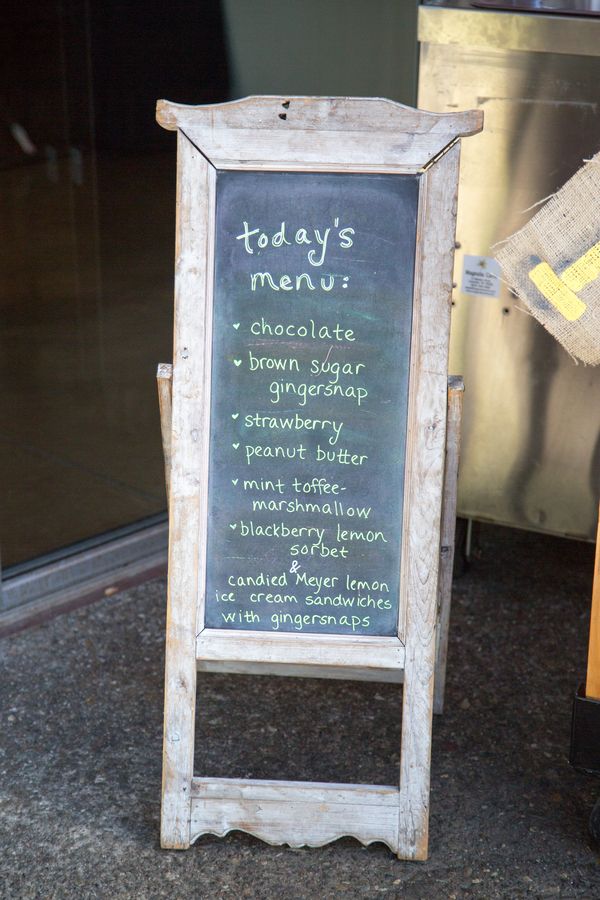 today's
menu:
♥ chocolate
♥ brown sugar
gingersnap
♥ strawberry
♥ peanut butter
♥ mint toffee-
marshmallow
♥ blackberry lemon
sorbet
&
candied Meyer lemon
ice cream sandwiches
with gingersnaps